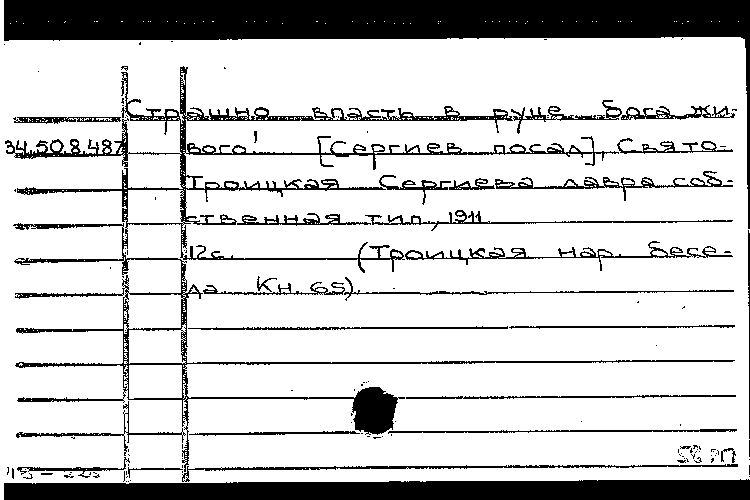 Страшно впасть в руце бога жи-
34.50.8.487 вого! [Сергиев посад], Свято-
Троицкая Сергиева лавра соб-
ственная тип., 1911
12с. (Троицкая нар. бесе-
да Кн. 65).